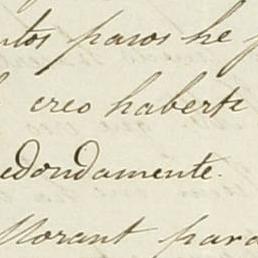 ntos pasos he
creo haberte
edondamente.
Morant para